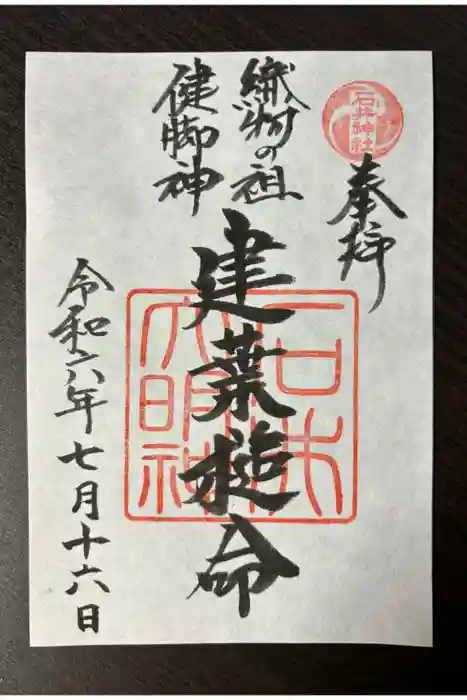 石井神社
奉拝
織物の祖
健脚神
建葉槌命
大明神
令和六年七月十六日